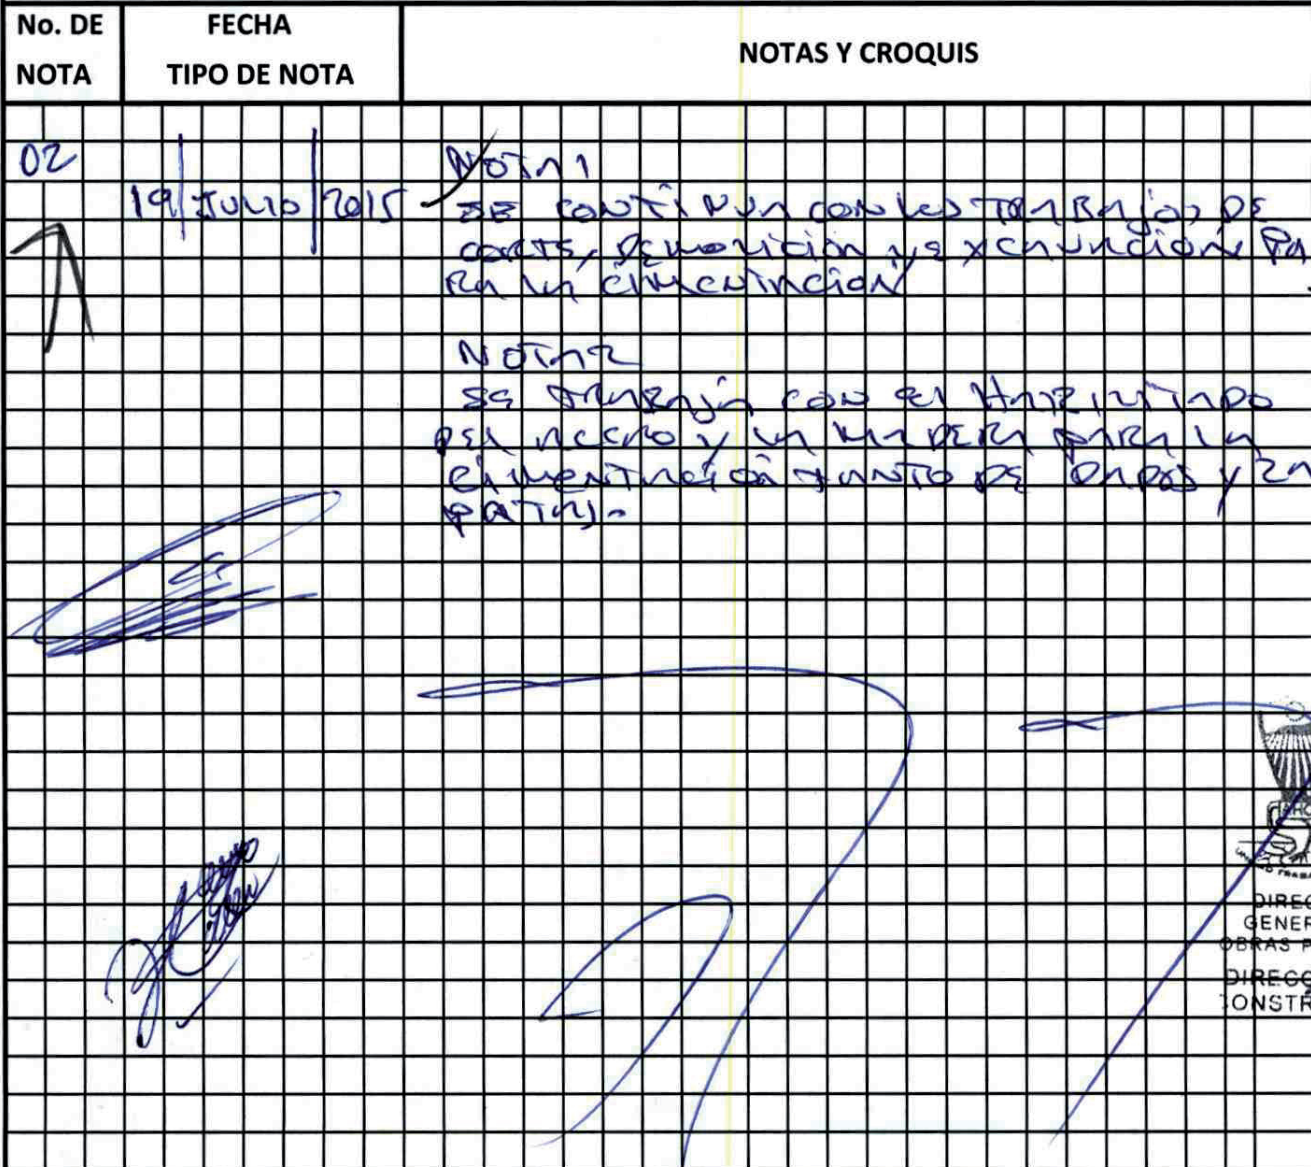 No. DE NOTA
FECHA
TIPO DE NOTA
NOTAS Y CROQUIS
02
19 JULIO 2015
NOTA 1
SE CONTINUA CON LOS TRABAJOS DE
CORTE, DEMOLICIÓN Y EXCAVACIÓN PA
RA LA CIMENTACIÓN
NOTA 2
SE TRABAJA CON EL HABILITADO
DEL ACERO Y LA MADERA PARA LA
CIMENTACIÓN TANTO DE DADOS Y ZA
PATAS.
DIREC
GENER
OBRAS P
DIRECC
CONSTR